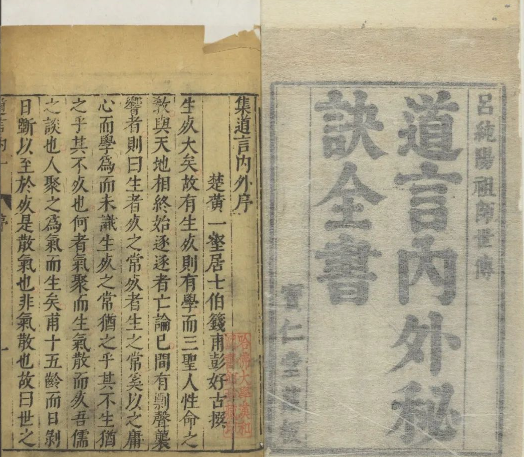 呂純陽祖師世傳
道言內外秘
訣全書
集道言內外序
楚黃一壑居士伯籛甫彭好古撰
生𣦸大矣故有生𣦸則有學而三聖人性命之
教與天地相終始逐逐者亡論已間有剽聲襲
響者則曰生者𣦸之常𣦸者生之常奚以之庸
心而學為而未識生𣦸之常猶之乎其不生猶
之乎其不𣦸也何者氣聚而生氣散而𣦸吾儒
之談也人聚之為氣而生矣甫十五齡而日剝
日斷以至於𣦸是散氣也非氣散也故曰世之